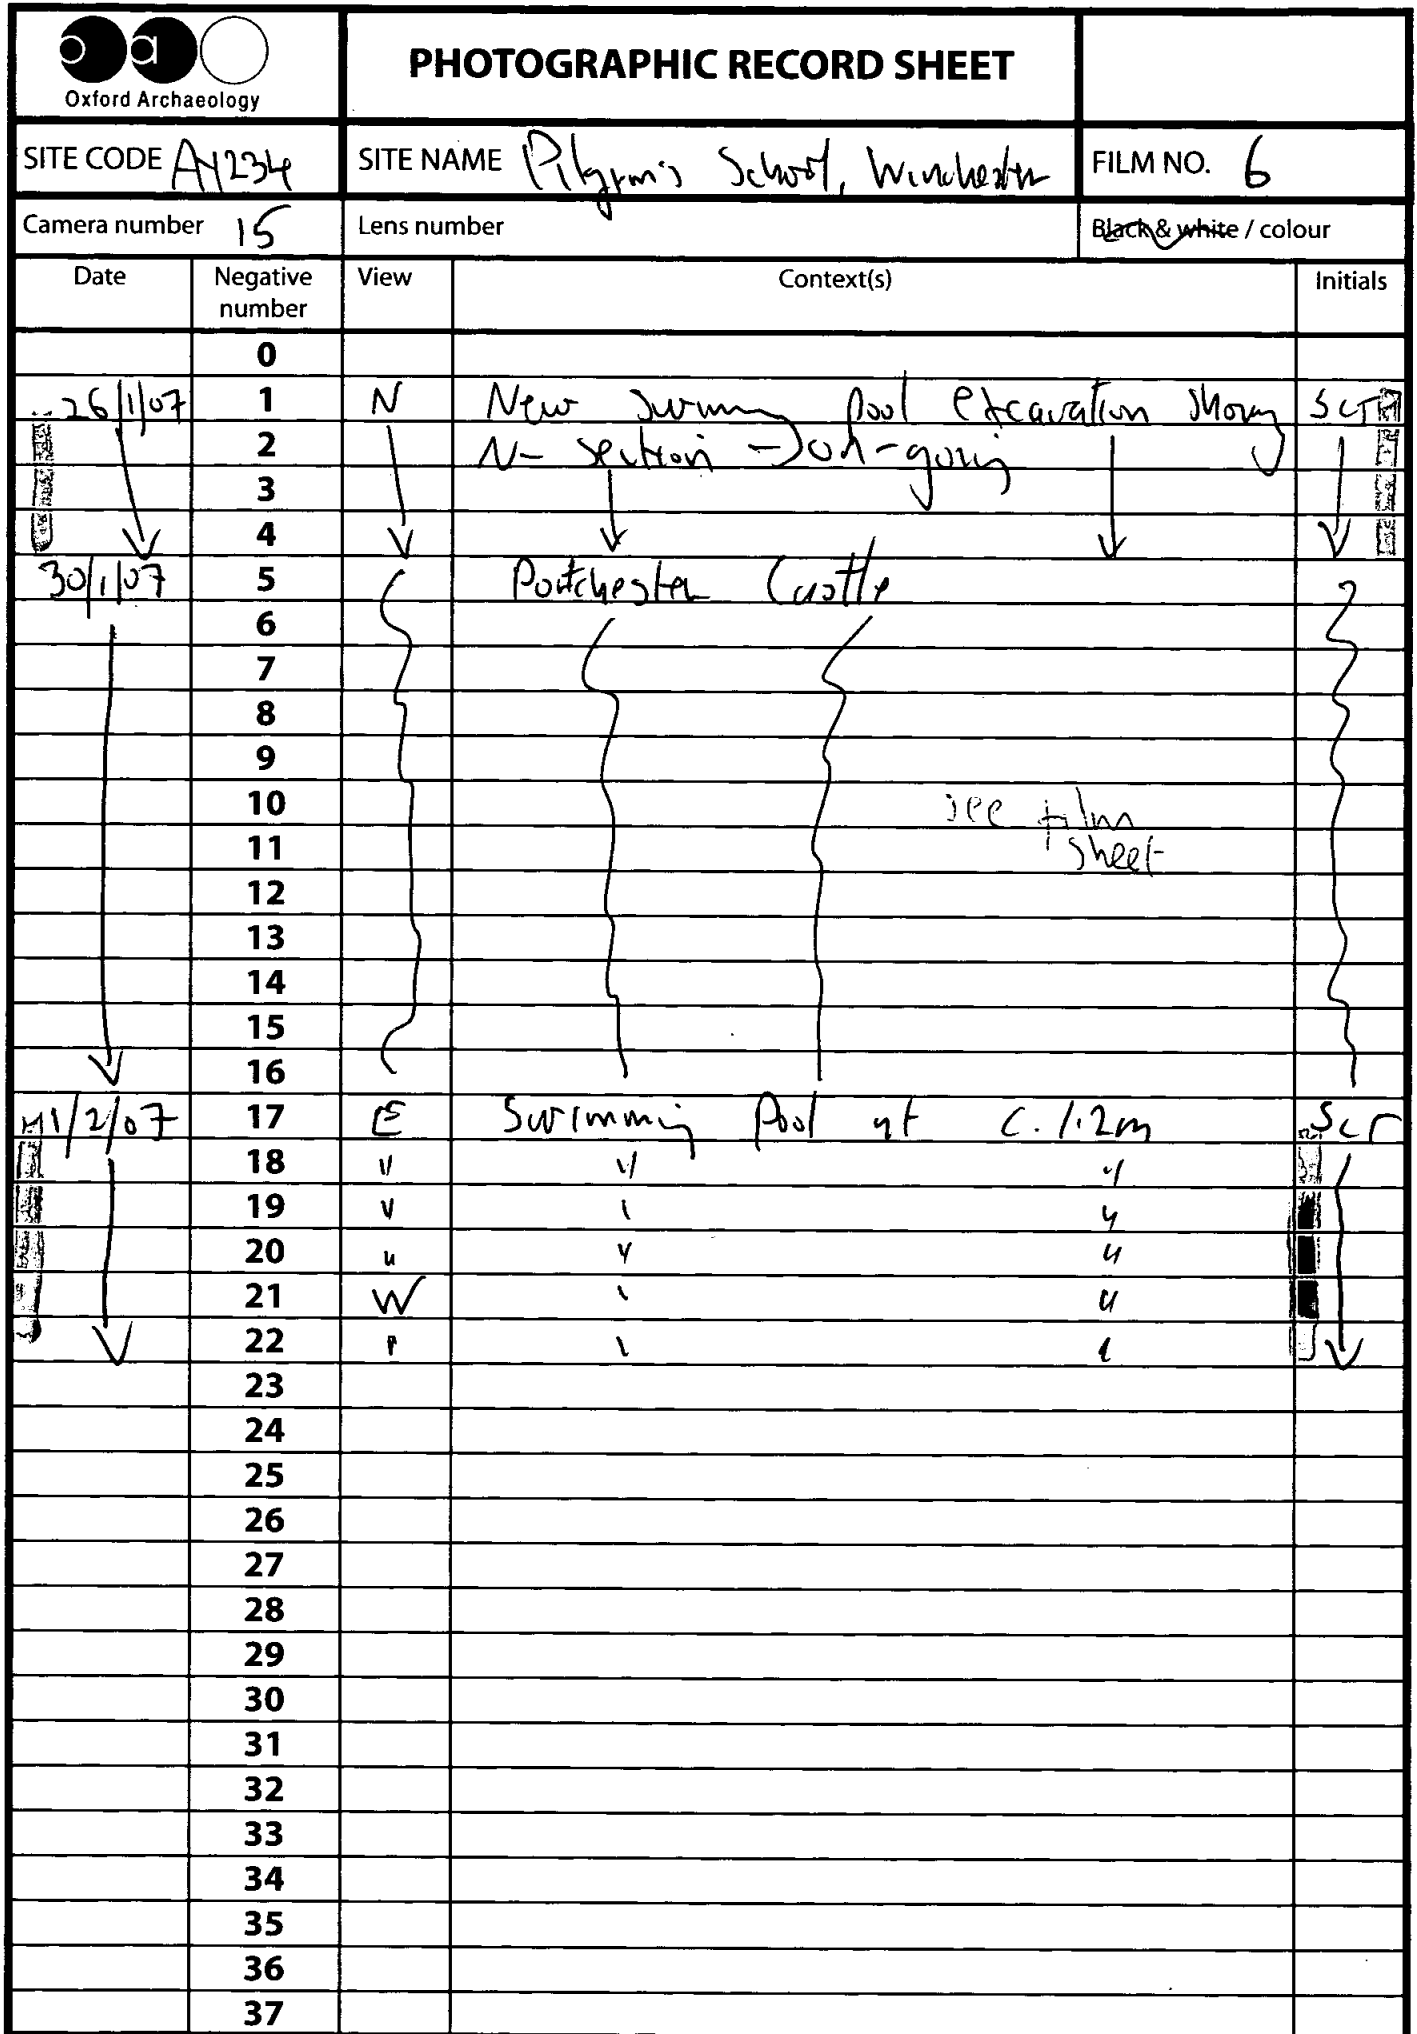 Oxford Archaeology
PHOTOGRAPHIC RECORD SHEET
SITE CODE AY234 SITE NAME Pilgrim's School, Winchester FILM NO. 6
Camera number 15 Lens number Black & white / colour
Date Negative number View Context(s) Initials
0
26/1/07 1 N New swimming pool excavation showing SCT
2 N- section → on-going
3
4
30/1/07 5 Portchester Castle
6
7
8
9
10 see film
11 sheet
12
13
14
15
16
1/2/07 17 E Swimming Pool at C. 1.2m SCT
18 " " "
19 " " "
20 " " "
21 W " "
22 " " "
23
24
25
26
27
28
29
30
31
32
33
34
35
36
37